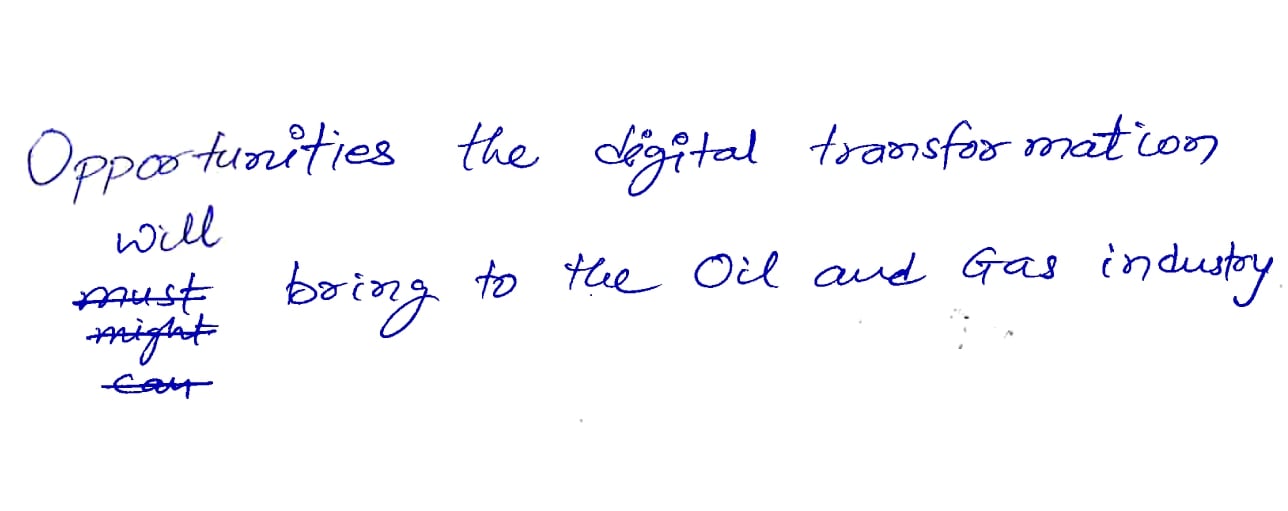 Opportunities the digital transformation
will
must bring to the Oil and Gas industry.
might
can